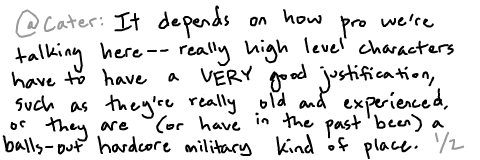 @Cater: It depends on how pro we're
talking here-- really high level characters
have to have a VERY good justification,
such as they're really old and experienced,
or they are (or have in the past been) a
balls-out hardcore military kind of place. 1/2